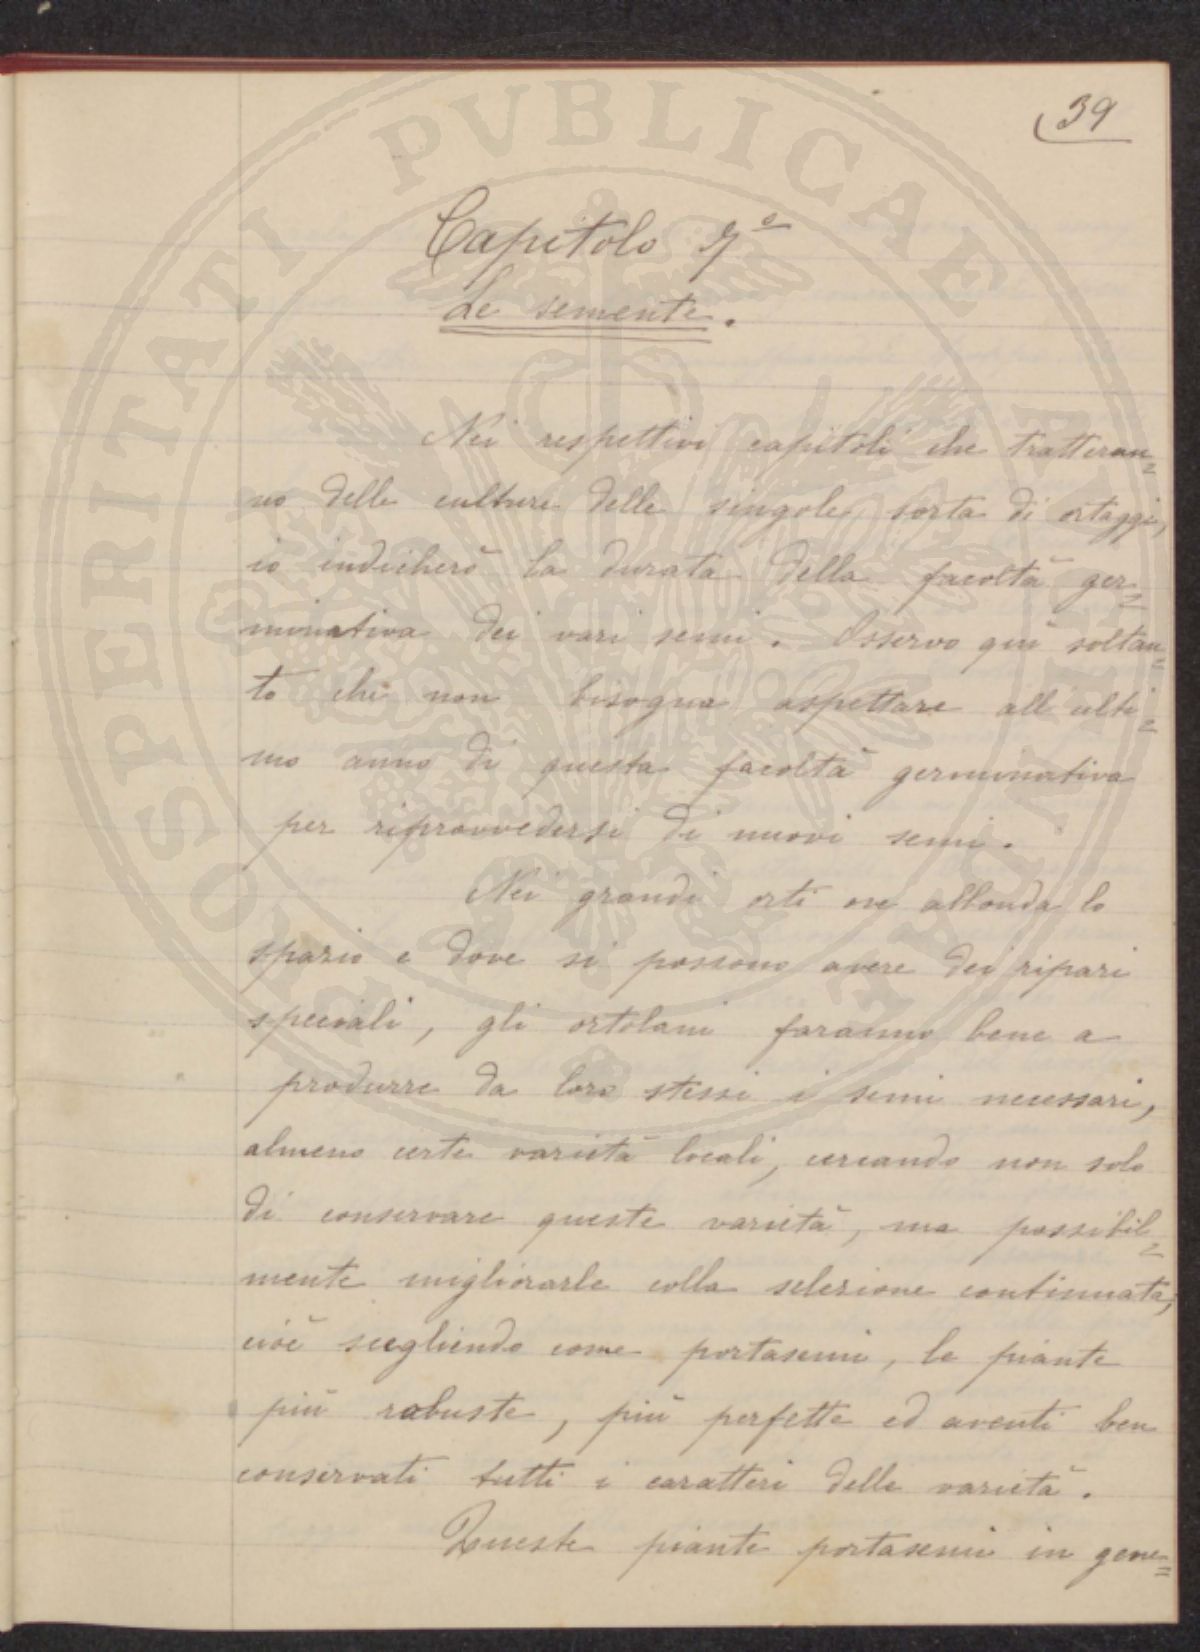 39
Capitolo 7º
Le semente.
Nei respettivi capitoli che tratteran=
no delle culture delle singole sorta di ortaggi,
io indicherò la durata della facoltà ger=
minativa dei vari semi. Osservo qui soltan=
to che non bisogna aspettare all'ulti=
mo anno di questa facoltà germinativa
per riprovvedersi di nuovi semi.
Nei grandi orti ove abbonda lo
spazio e dove si possono avere dei ripari
speciali, gli ortolani faranno bene a
produrre da loro stessi i semi necessari,
almeno certe varietà locali, cercando non solo
di conservare queste varietà, ma possibil=
mente migliorarle colla selezione continuata,
cioè scegliendo come portasemi, le piante
più robuste, più perfette ed aventi ben
conservati tutti i caratteri delle varietà.
Queste piante portasemi in gene=
PROSPERITATI PVBLICAE AVGENDAE